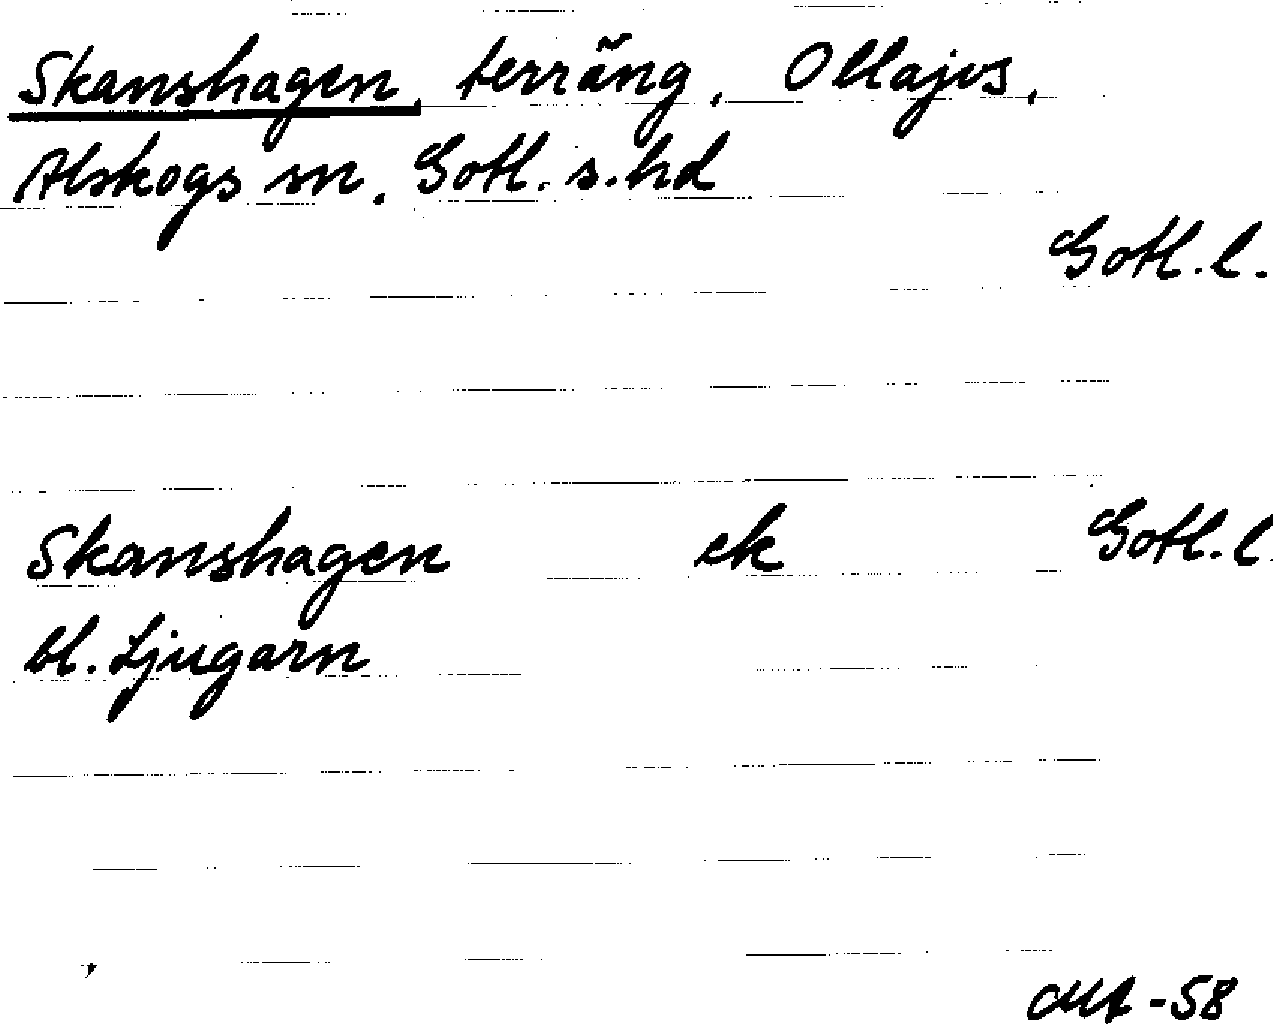 Skanshagen, terräng, Ollajvs,
Alskogs sn. Gotl. s. hd
Gotl. l.
Skanshagen ek Gotl. l.
bl. Ljugarn
-58